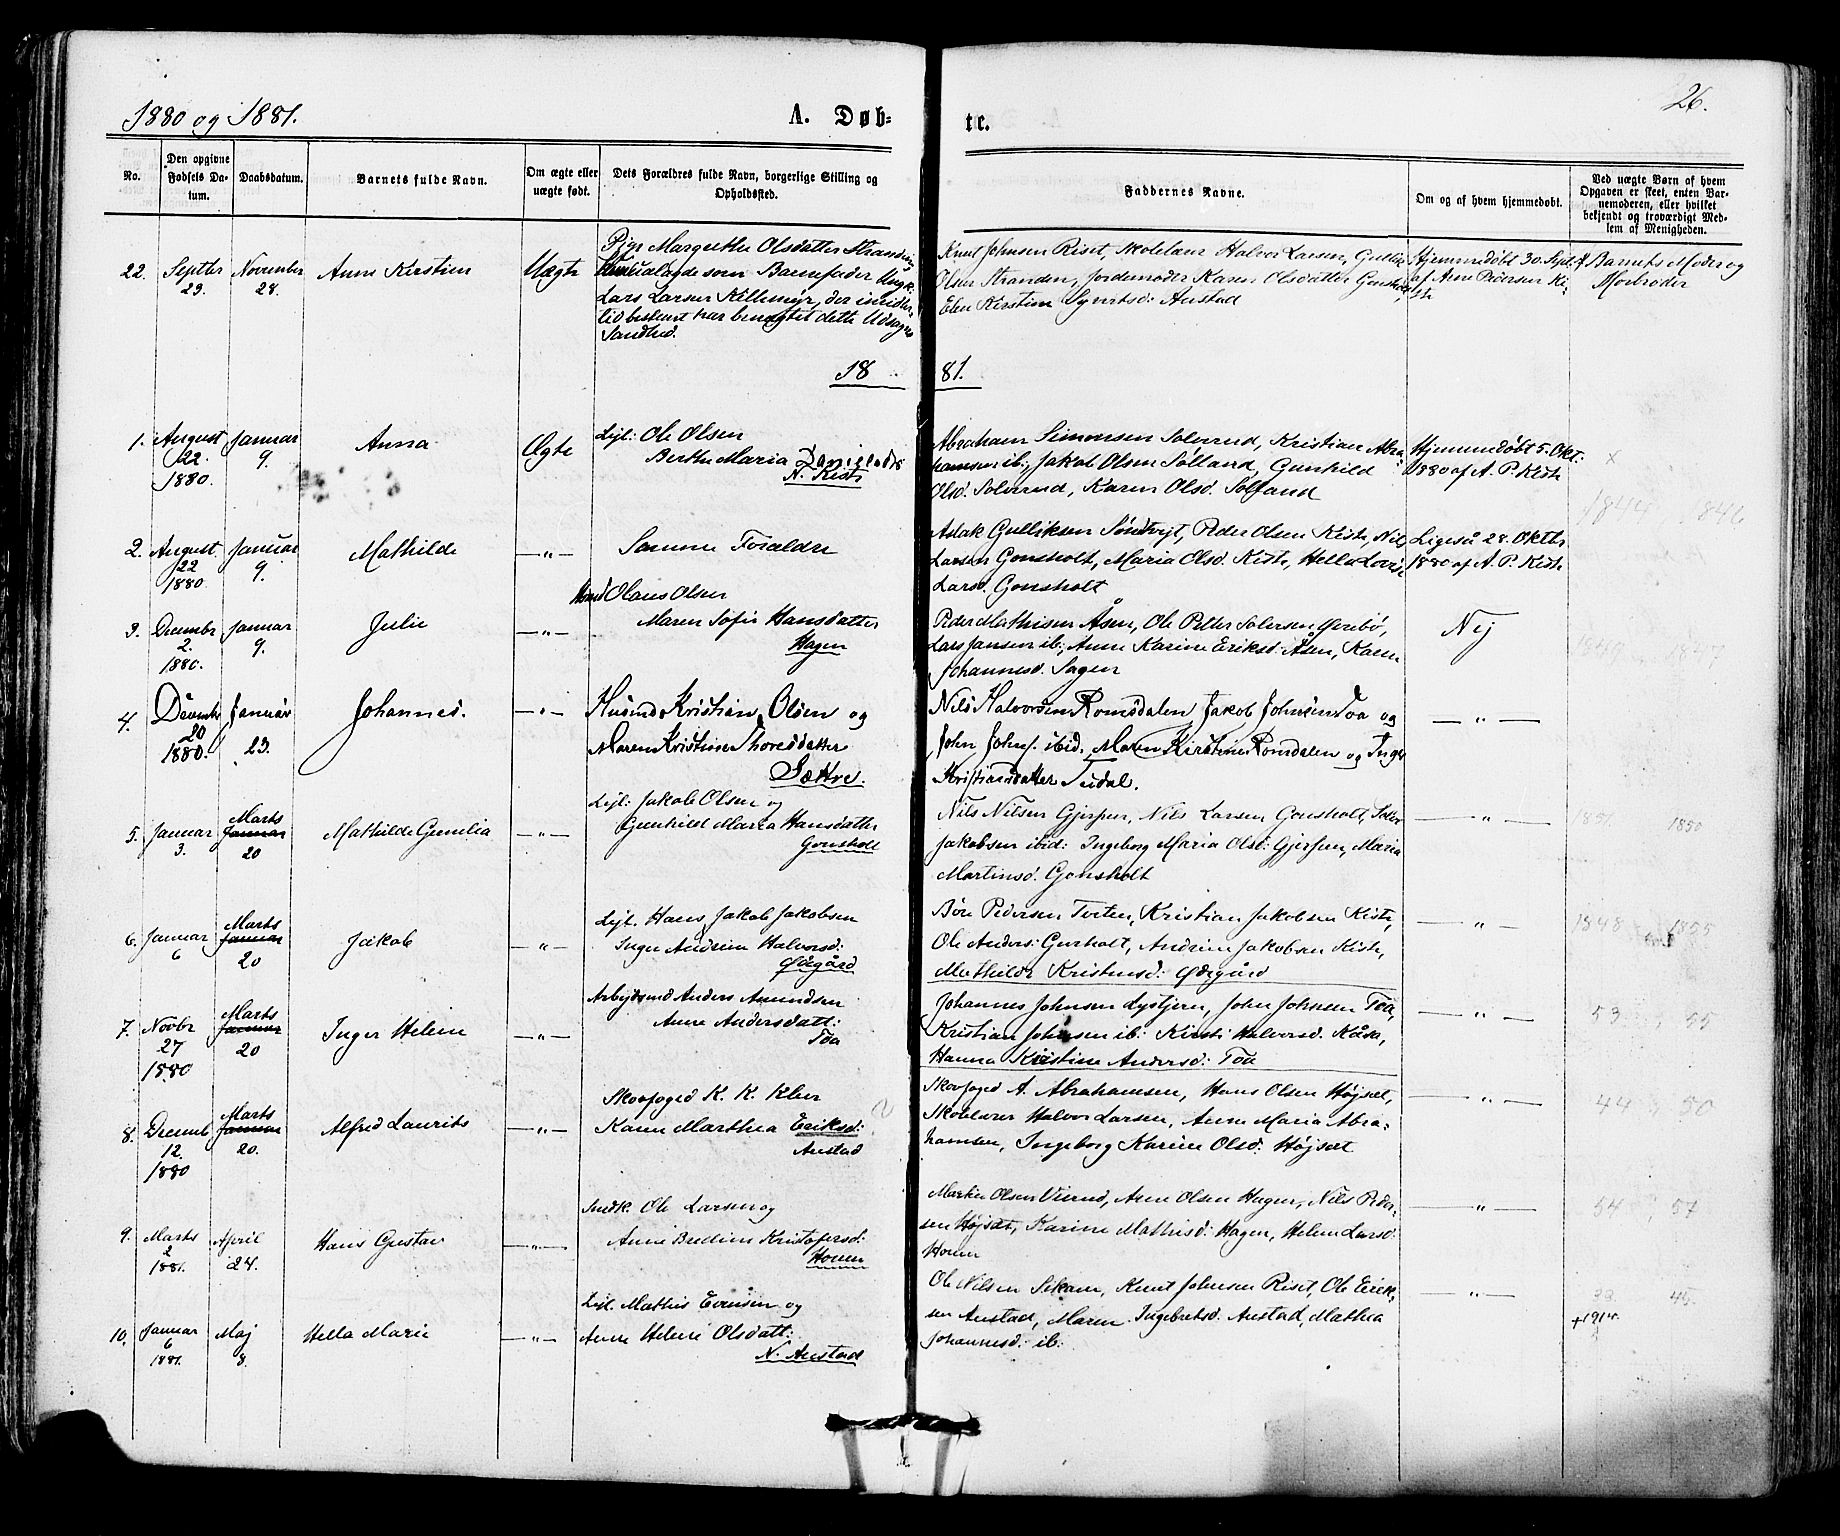 1880 og 1881.
A. Døb-
te.
26.
No.
Den opgivne Fødsels Da-tum.
Daabsdatum.
Barnets fulde Navn.
Om ægte eller uægte født.
Dets Forældres fulde Navn, borgerlige Stilling og Opholdssted.
Faddernes Navne.
Om og af hvem hjemmedøbt.
Ved uægte Børn af hvem Opgaven er skeet, enten Bar-nemoderen, eller hvilket bekjendt og troværdigt Med-lem af Menigheden.
22. Septbr 23. November 28. Anne Kirstine Uægte
Pige Margrethe Olsdatter Stranden,
som Barnefader Ungk.
Lars Larsen Killemyr, der imidler-
tid bestemt har benægtet dette Udsagns
Sandhed.
Knut Johnsen Riset, Skolelærer Halvor Larsen, Gullik
Olsen Stranden, Jordemoder Karen Olsdatter Gonsholt,
Elen Kirstine Syvertsd: Anstad
Hjemmedøbt 30. Septbr
af Arne Pedersen Ki-
ste
Barnets Moder og
Morbroder
1881.
1. August 22. 1880. Januar 9. Anna Ægte
Lejl: Ole Olsen
Berthe Maria Danielsdtr
N. Kiste
Abraham Simonsen Solverud, Kristian Abra-
hamsen ib:, Jakob Olsen Sølland, Gunhild
Olsd. Solverud, Karen Olsd. Sølland
Hjemmedøbt 5. Okt:
1880 af A. P. Kiste
x
1844 846
2. August 22 1880. Januar 9. Mathilde —"—
Samme Forældre
Aslak Gulliksen Søndtvejt, Peder Olsen Kiste, Nils
Larsen Gonsholt, Maria Olsd. Kiste, Hella Lovise
Larsd. Gonsholt
Ligeså 28. Oktbr
1880 af A. P. Kiste
3. Decembr 2. 1880. Januar 9. Julie —"—
Husmd Olaus Olsen
Maren Sofie Hansdatter
Hagen
Peder Mathisen Åsen, Ole Petter Solversen Ørebø,
Lars Jansen ib:, Anne Karine Eriksd: Åsen, Karen
Johannesd. Sagen
Nej
1849 1847
4. Decembr 20 1880. Januar 23. Johannes. —"—
Husmd Kristian Olsen og
Maren Kristine Thoresdatter
Sætre.
Nils Halvorsen Romsdalen Jakob Johnsen Toa og
John Johns. ibid. Maren Kirstine Romsdalen og Inger
Kristiansdatter Tudal.
—"—
5. Januar 3. Marts Januar 20 Mathilde Gunilia —"—
Lejl: Jakob Olsen og
Gunhild Maria Hansdatter
Gonsholt
Nils Nilsen Gjerpen, Nils Larsen Gonsholt, Solve
Jakobsen ibid: Ingeborg Maria Olsd: Gjerpen, Maria
Martinsd. Gonsholt
—"—
1851 1850
6. Januar 6 Marts Januar 20 Jakob —"—
Lejl. Hans Jakob Jakobsen
Inger Andrine Halvorsd:
Ødegård
Børe Pedersen Tveten, Kristian Jakobsen Kiste,
Ole Anders: Gursholt, Andrine Jakobsen Kiste,
Mathilde Kristensd: Ødegård
—"—
1848 1855
7. Novbr 27 1880 Marts Januar 20 Inger Helene —"—
Arbejdsmd Anders Amundsen
Anne Andersdatt:
Toa
Johannes Johnsen Lystjern, John Johnsen Toa,
Kristian Johnsen ib: Kirsti Halvorsd. Kåsa,
Hanna Kristine Andersd: Toa
—"—
53 55
8. Decemb. 12. 1880 Marts Januar 20. Alfred Laurits —"—
Skovfoged K. K. Klev
Karen Marthea Eriksd:
Anstad
Skovfoged A. Abrahamsen, Hans Olsen Højset,
Skolelærer Halvor Larsen, Anne Maria Abra-
hamsen, Ingeborg Karine Olsd: Højset
—"—
44 50
9. Marts 2 1881. April 24. Hans Gustav —"—
Indk. Ole Larsen og
Anne Bredine Kristofersd:
Homen
Martin Olsen Vierud, Arne Olsen Hagen, Nils Peder-
sen Højset, Karine Mathisd: Hagen, Helene Larsd.
Homen
—"—
54 57
10. Januar 6 1881. Maj 8. Hella Marie —"—
Lejl. Mathis Evensen og
Anne Helene Olsdatt:
N. Anstad
Ole Nilsen Sikam, Knut Johnsen Riset, Ole Erik-
sen Anstad, Maren Ingebretsd. Anstad, Mathea
Johannesd: ib:
—"—
45.
+1914.